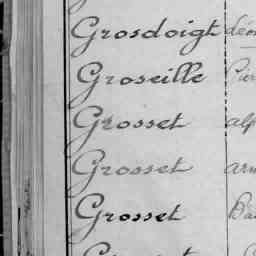 Grosdoigt
Groseille
Grosset alp
Grosset arm
Grosset